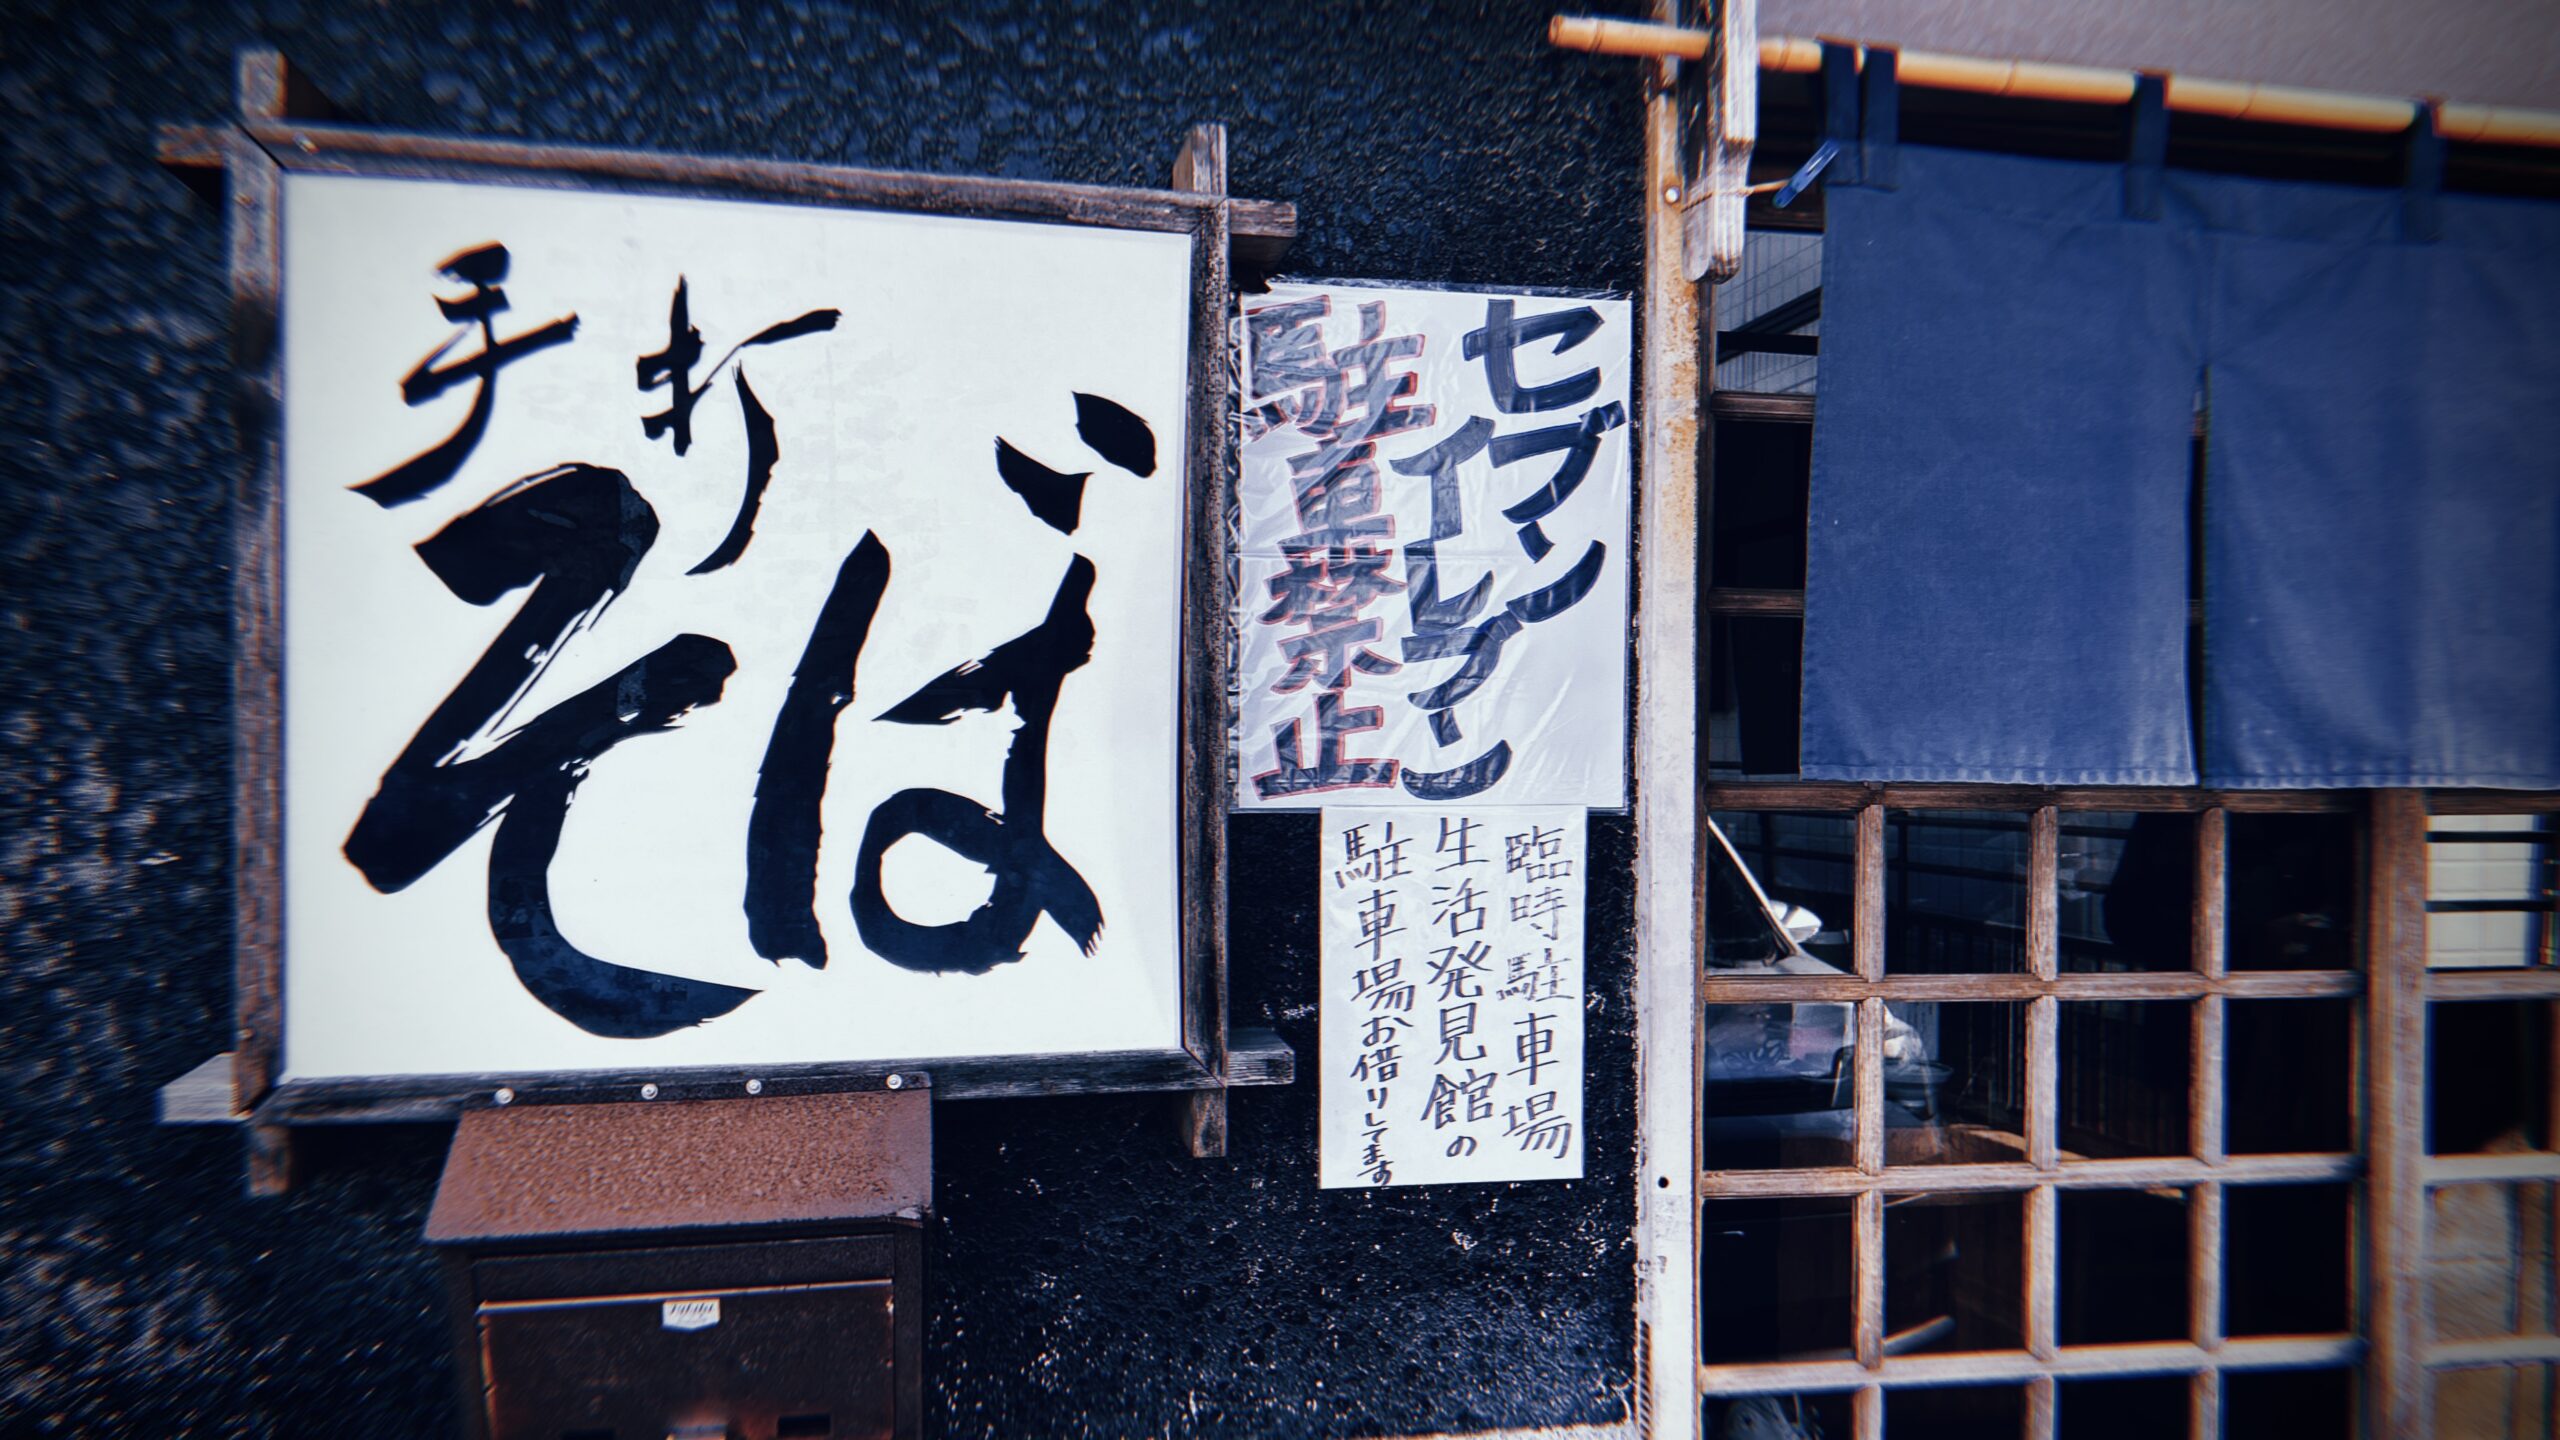 手打
そば
セブン
イレブン
駐車禁止
臨時駐車場
生活発見館の
駐車場お借りしてます